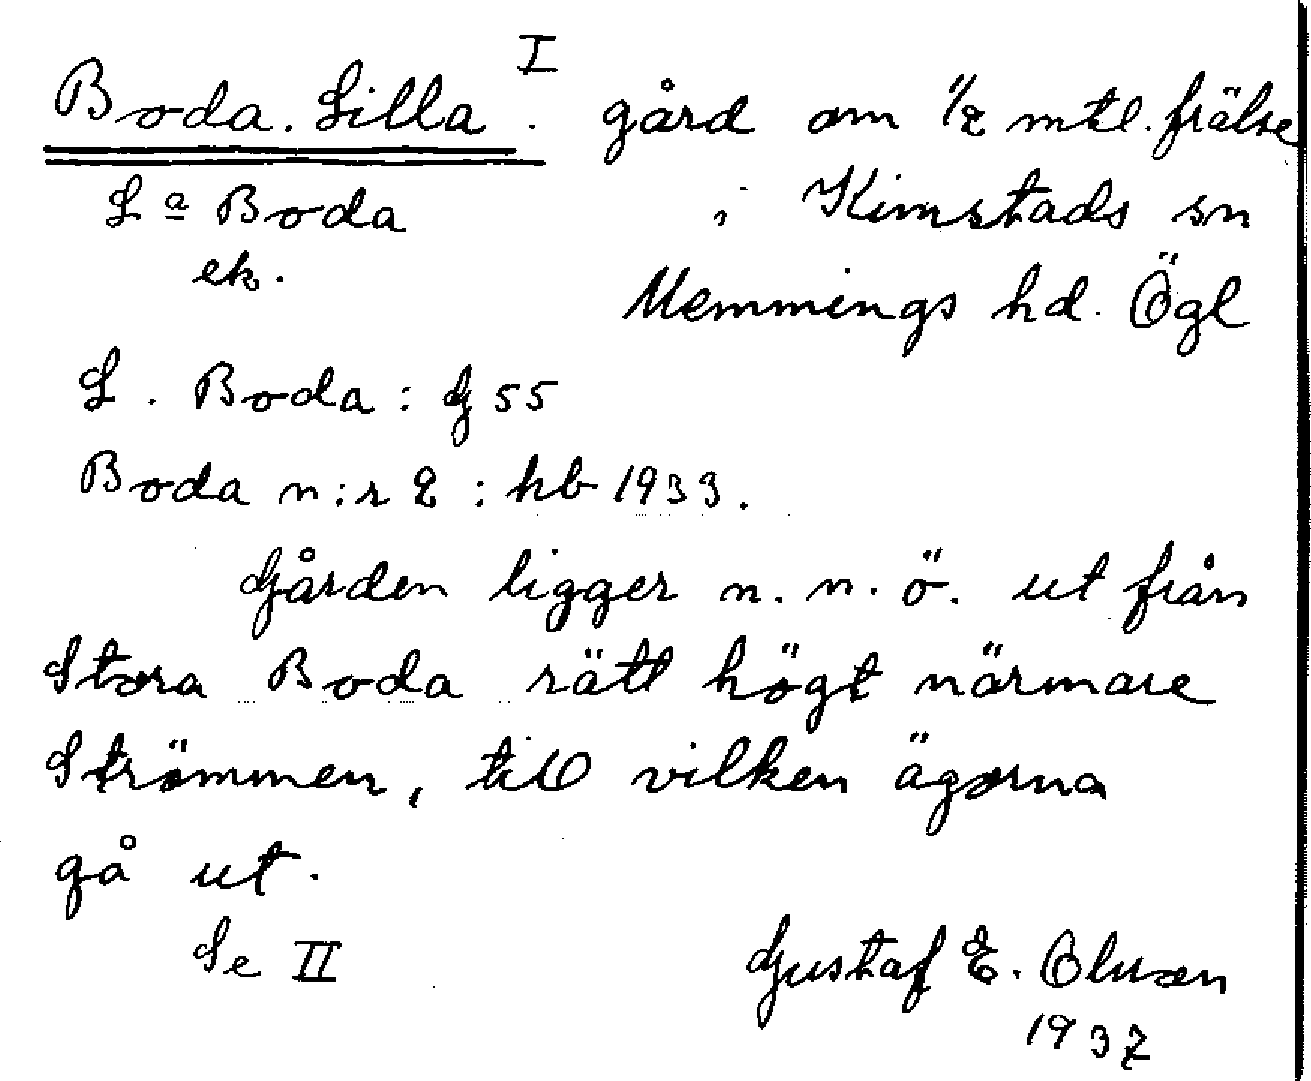 Boda. Lilla I. gård om 1/2 mtl. frälse
Lª Boda i Kimstads sn
ek. Memmings hd. Ögl
L. Boda : G 55
Boda n:r 2 : hb 1933.
Gården ligger n. n. ö. ut från
Stora Boda rätt högt närmare
Strömmen, till vilken ägorna
gå ut.
Se II Gustaf E. Olsson
1937